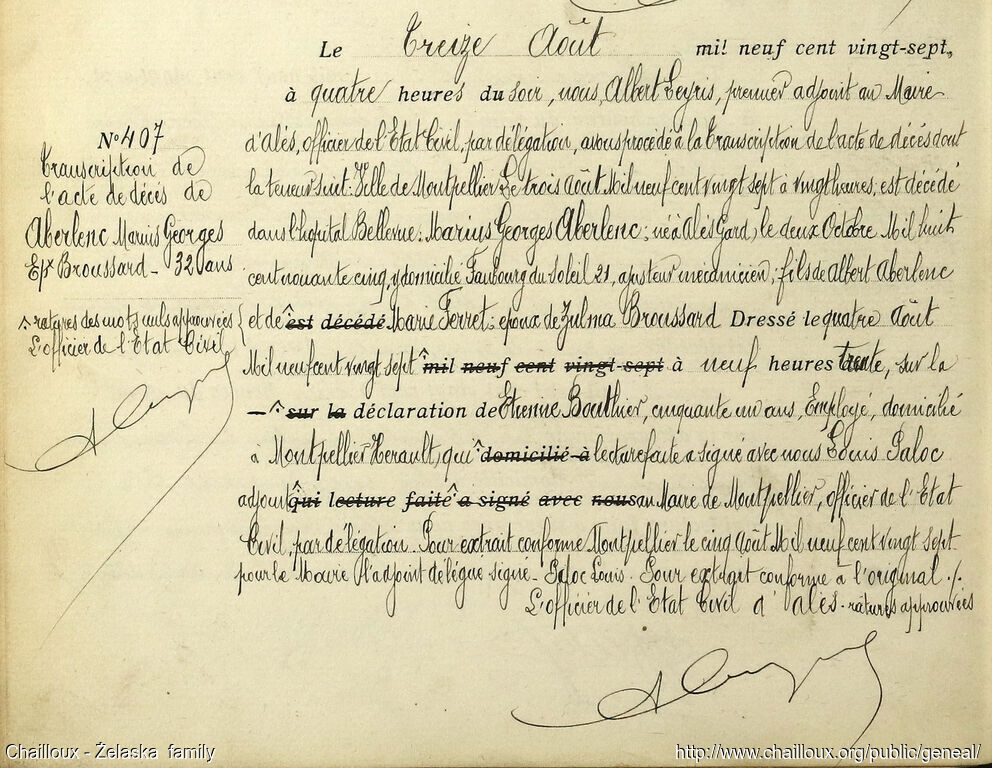 Le Treize Août mil neuf cent vingt-sept,
à quatre heures du soir, nous, Albert Leyris, premier adjoint au Maire
N° 407
Transcription de
l'acte de décès de
Aberlenc Marius Georges
Ep.x Broussard - 32 ans
ratures des mots nuls approuvées
L'officier de l'Etat Civil
d'Alès, officier de l'Etat Civil, par délégation, avons procédé à la transcription de l'acte de décès dont
la teneur suit: Ville de Montpellier Le trois Août Mil neuf cent vingt sept à vingt heures, est décédé
dans l'hopital Bellevue: Marius Georges Aberlenc; né à Alès Gard, le deux Octobre Mil huit
cent nouante cinq, y domicilié Faubourg du Soleil 21, ajusteur mécanicien, fils de Albert Aberlenc
et de est décédé Marie Ferret; époux de Zulma Broussard Dressé le quatre Août
Mil neuf cent vingt sept mil neuf cent vingt-sept à neuf heures trente, sur la
sur la déclaration de Etienne Bouthier, cinquante un ans, Employé, domicilié
à Montpellier Herault, qui domicilié à lecture faite a signé avec nous Louis Paloc
adjoint qui lecture faite a signé avec nous au Maire de Montpellier, officier de l'Etat
Civil, par délégation. Pour extrait conforme Montpellier le cinq Août Mil neuf cent vingt sept
pour le Maire l'adjoint délégué signé - Paloc Louis. Pour extrait conforme à l'original ./.
L'officier de l'Etat Civil d'Alès - ratures approuvées
Chailloux - Żelaska family
http://www.chailloux.org/public/geneal/